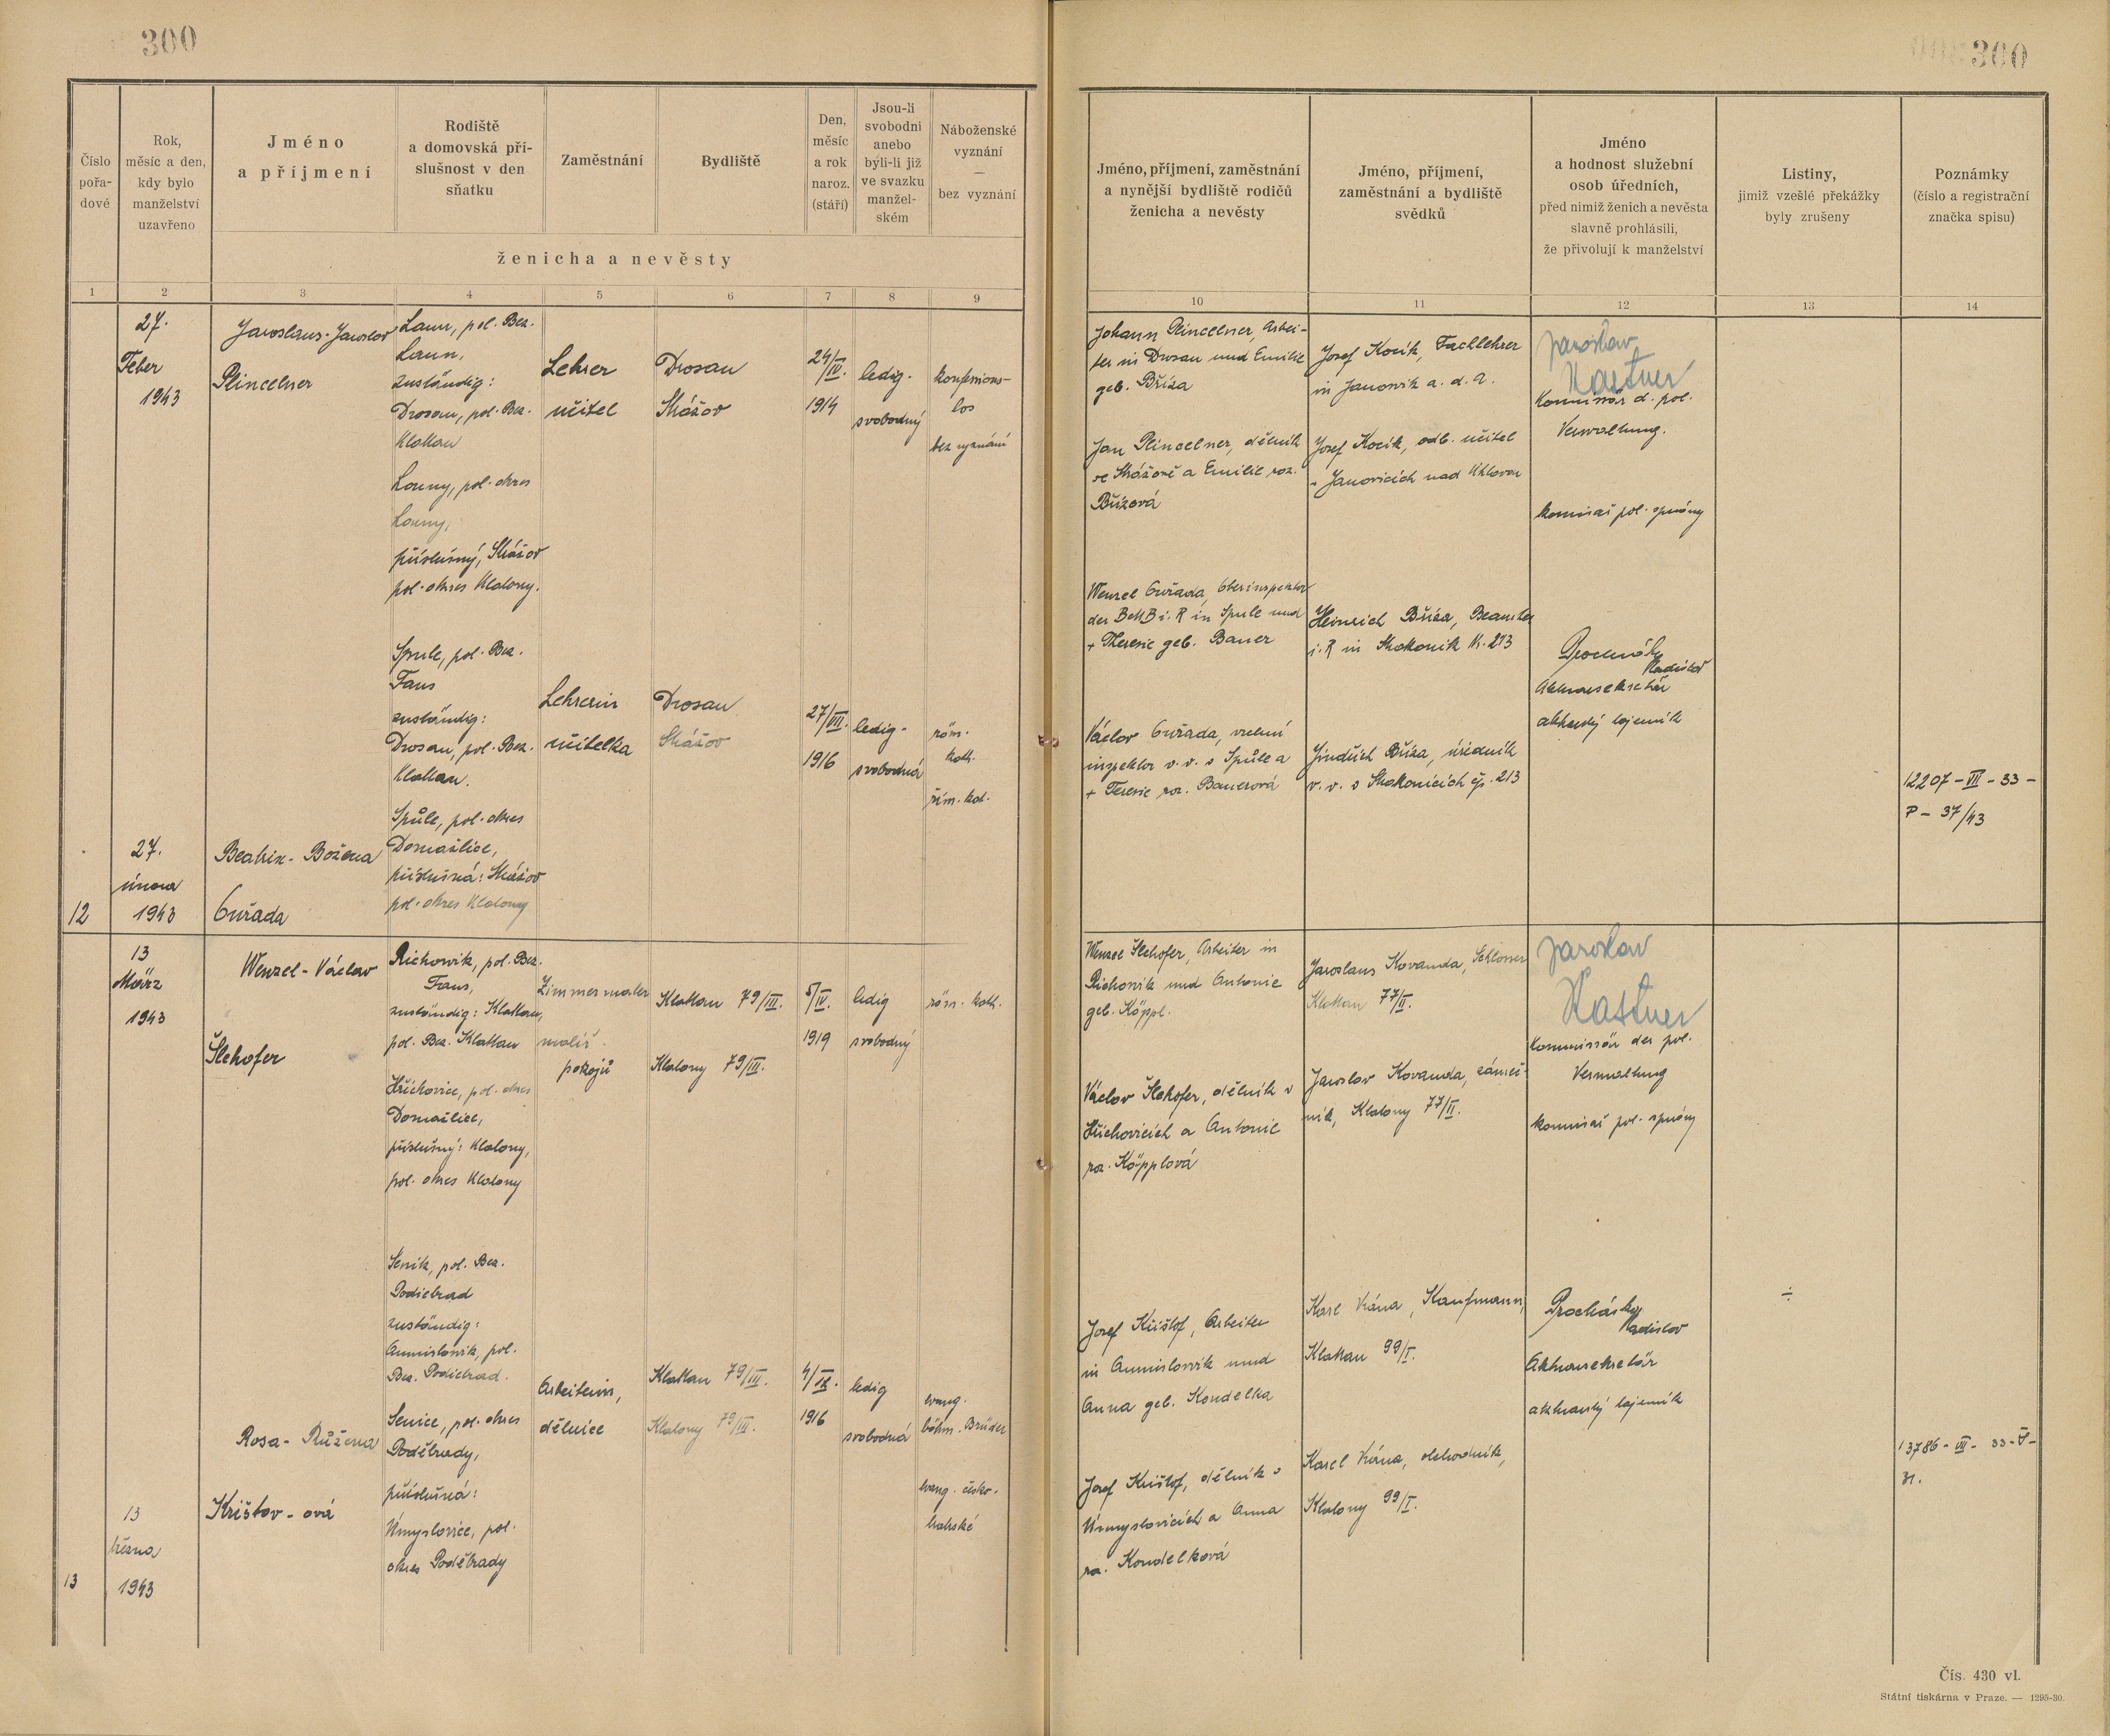 300
300
Číslo
pořa-
dové
Rok,
měsíc a den,
kdy bylo
manželství
uzavřeno
Jméno
a příjmení
Rodiště
a domovská pří-
slušnost v den
sňatku
Zaměstnání
Bydliště
Den,
měsíc
a rok
naroz.
(stáří)
Jsou-li
svobodni
anebo
byli-li již
ve svazku
manžel-
ském
Náboženské
vyznání
—
bez vyznání
ženicha a nevěsty
Jméno, příjmení, zaměstnání
a nynější bydliště rodičů
ženicha a nevěsty
Jméno, příjmení,
zaměstnání a bydliště
svědků
Jméno
a hodnost služební
osob úředních,
před nimiž ženich a nevěsta
slavně prohlásili,
že přivolují k manželství
Listiny,
jimiž vzešlé překážky
byly zrušeny
Poznámky
(číslo a registrační
značka spisu)
1 2 3 4 5 6 7 8 9 10 11 12 13 14
27.
Feber
1943
Jaroslaus-Jaroslav
Plincelner
Laun, pol. Bez.
Laun,
zuständig:
Drosau, pol. Bez.
Klattau
Louny, pol. okres
Louny,
příslušný, Strážov
pol. okres Klatovy.
Lehrer
učitel
Drosau
Strážov
24/IV.
1914
ledig.
svobodný
konfessions-
los
bez vyznání
Johann Plincelner, Arbei-
ter in Drosau und Emilie
geb. Bříza
Jan Plincelner, dělník
ve Strážově a Emilie roz.
Břízová
Josef Kocík, Fachlehrer
in Janowik a. d. A.
Josef Kocík, odb. učitel
v Janovicích nad Úhlavou
Jaroslav
Kastner
Kommissär d. pol.
Verwaltung.
komisař pol. správy
Spule, pol. Bez.
Taus
zuständig:
Drosau, pol. Bez.
Klattau.
Spůle, pol. okres
Domažlice,
příslušná: Strážov
pol. okres Klatovy
Lehrerin
učitelka
Drosau
Strážov
27/VII.
1916
ledig.
svobodná
röm.
kath.
řím. kat.
Wenzel Cuřada, Oberinspektor
der BMB i. R in Spule und
+ Theresie geb. Bauer
Václav Cuřada, vrchní
inspektor v. v. v Spůle a
+ Terezie roz. Bauerová
Heinrich Bříza, Beamter
i. R in Strakonik Nr. 213
Jindřich Bříza, úředník
v. v. v Strakonicích čp. 213
Procházka
Vladislav
Aktuarsekretär
aktuárský tajemník
12207-VII-33-
P-37/43
27.
února
1943
Beatrix-Božena
Cuřada
12
13
März
1943
Wenzel-Václav
Šlehofer
Richowik, pol. Bez.
Taus,
zuständig: Klattau,
pol. Bez. Klattau
Hřichovice, pol. okres
Domažlice,
příslušný: Klatovy,
pol. okres Klatovy
Zimmermaler
malíř
pokojů
Klattau 79/III.
Klatovy 79/III.
5/IV.
1919
ledig
svobodný
röm. kath.
Wenzel Šlehofer, Arbeiter in
Richowik und Antonie
geb. Köppl.
Václav Šlehofer, dělník v
Hřichovicích a Antonie
roz. Köpplová
Jaroslaus Kovanda, Schlosser
Klattau 77/II.
Jaroslav Kovanda, zámeč-
ník, Klatovy 77/II.
Jaroslav
Kastner
Kommissär der pol.
Verwaltung
komisař pol. správy
Senik, pol. Bez.
Podiebrad
zuständig:
Aumislowik, pol.
Bez. Podiebrad.
Senice, pol. okres
Poděbrady,
příslušná:
Úmyslovice, pol.
okres Poděbrady
Arbeiterin,
dělnice
Klattau 79/III.
Klatovy 79/III.
4/IX.
1916
ledig
svobodná
evang.
böhm. Brüder
evang. česko-
bratrské
Josef Krištof, Arbeiter
in Aumislowik und
Anna geb. Koudelka
Josef Krištof, dělník v
Úmyslovicích a Anna
roz. Koudelková
Karl Vrána, Kaufmann,
Klattau 99/I.
Karel Vrána, obchodník,
Klatovy 99/I.
Procházka
Vladislav
Aktuarsekretär
aktuárský tajemník
÷
13786-VII-33-Š-
31.
Rosa-Růžena
Krištov-ová
13
března
1943
13
Čís. 430 vl.
Státní tiskárna v Praze. — 1295-30.